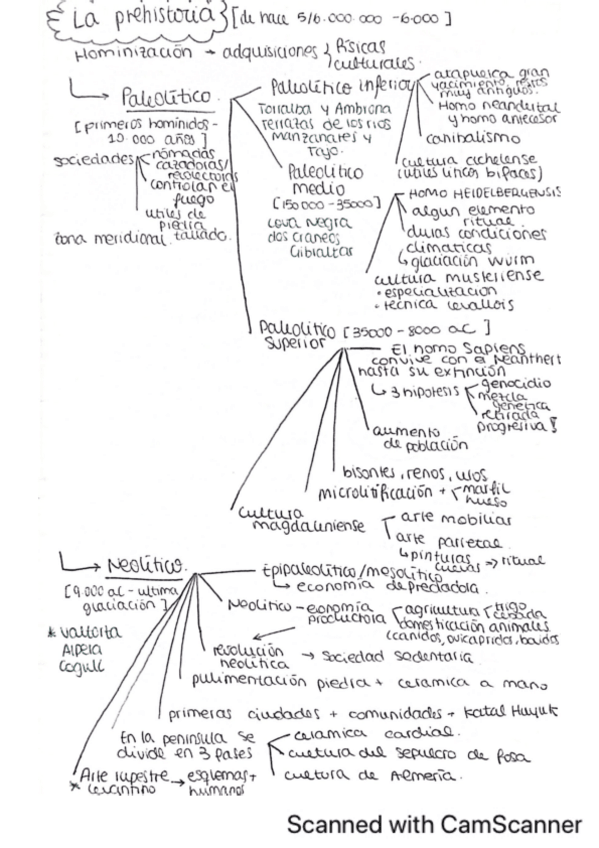 La prehistoria [de hace 5/6.000.000 - 6.000]
Hominización → adquisiciones físicas
culturales.
Paleolítico
[primeros homínidos -
10.000 años]
sociedades
nómadas
cazadoras/
recolectoras
controlan el
fuego
utiles de
piedra
tallado.
zona meridional
Paleolítico inferior
Torralba y Ambrona
terrazas de los rios
manzanares y
Tajo.
atapuerca gran
yacimiento, restos
muy antiguos.
Homo neandertal
y homo antecesor
canibalismo
cultura achelense
(utiles líticos bifaces)
Paleolítico
medio
[150000 - 35000]
cova negra
dos craneos
Gibraltar
HOMO HEIDELBERGENSIS
algun elemento
ritual
duras condiciones
climaticas
glaciación wurm
cultura musteriense
• especialización
• técnica levallois
Paleolítico [35000 - 8000 ac]
superior
El homo sapiens
convive con el Neanthert
hasta su extinción
3 hipotesis
genocidio
mezcla
genetica
retirada
progresiva
aumento
de población
bisontes, renos, uros
microlitificación + marfil
hueso
cultura
magdaleniense
arte mobiliar
arte parietal
pinturas
cuevas ⇒ ritual
Neolítico.
[9.000 ac - ultima
glaciación]
* valltorta
Alpera
Cogull
Epipaleolítico/mesolítico
economía depredadora.
Neolítico - economía
productora
agricultura
trigo
cebada
domesticación animales
(canidos, ovicapridos, bovidos
revolución
neolítica
→ sociedad sedentaria
pulimentación piedra + ceramica a mano
primeras ciudades + comunidades → Katal Huyuk
En la peninsula se
divide en 3 fases
ceramica cardial.
cultura del sepulcro de fosa
cultura de Almería.
* Arte rupestre
levantino
→ esquemas +
humanos
Scanned with CamScanner